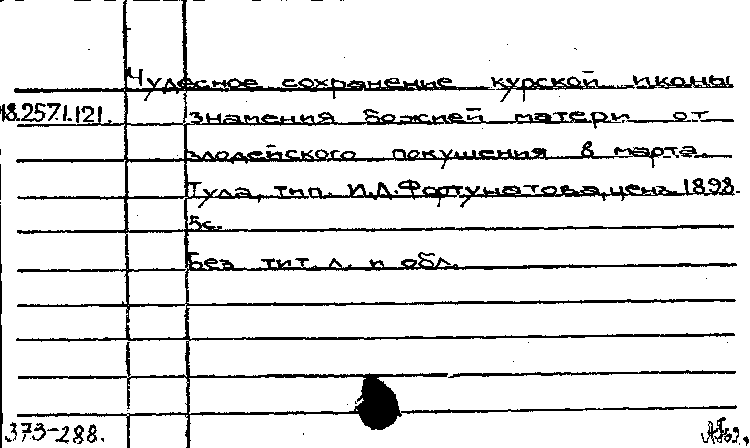 Чудесное сохранение курской иконы
18.257.1.121. знамения божией матери от
злодейского покушения 8 марта.
Тула, тип. И.Д.Фортунатова, ценз. 1898.
5с.
Без тит. л. и обл.
373-288.